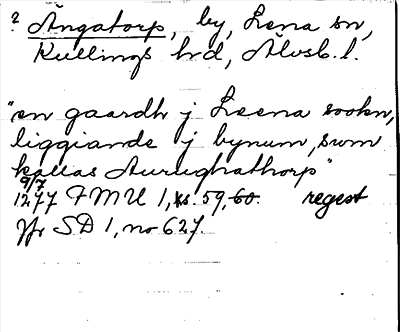 ? Ängatorp, by, Lena sn,
Kullings hd, Älvsb. l.
"en gaardh j Leena sookn,
liggiande j bynum, swm
kallas Aurughathorp"
9/7
1277 FMU 1, s. 59, 60. regest
Jfr SD 1, no 627.